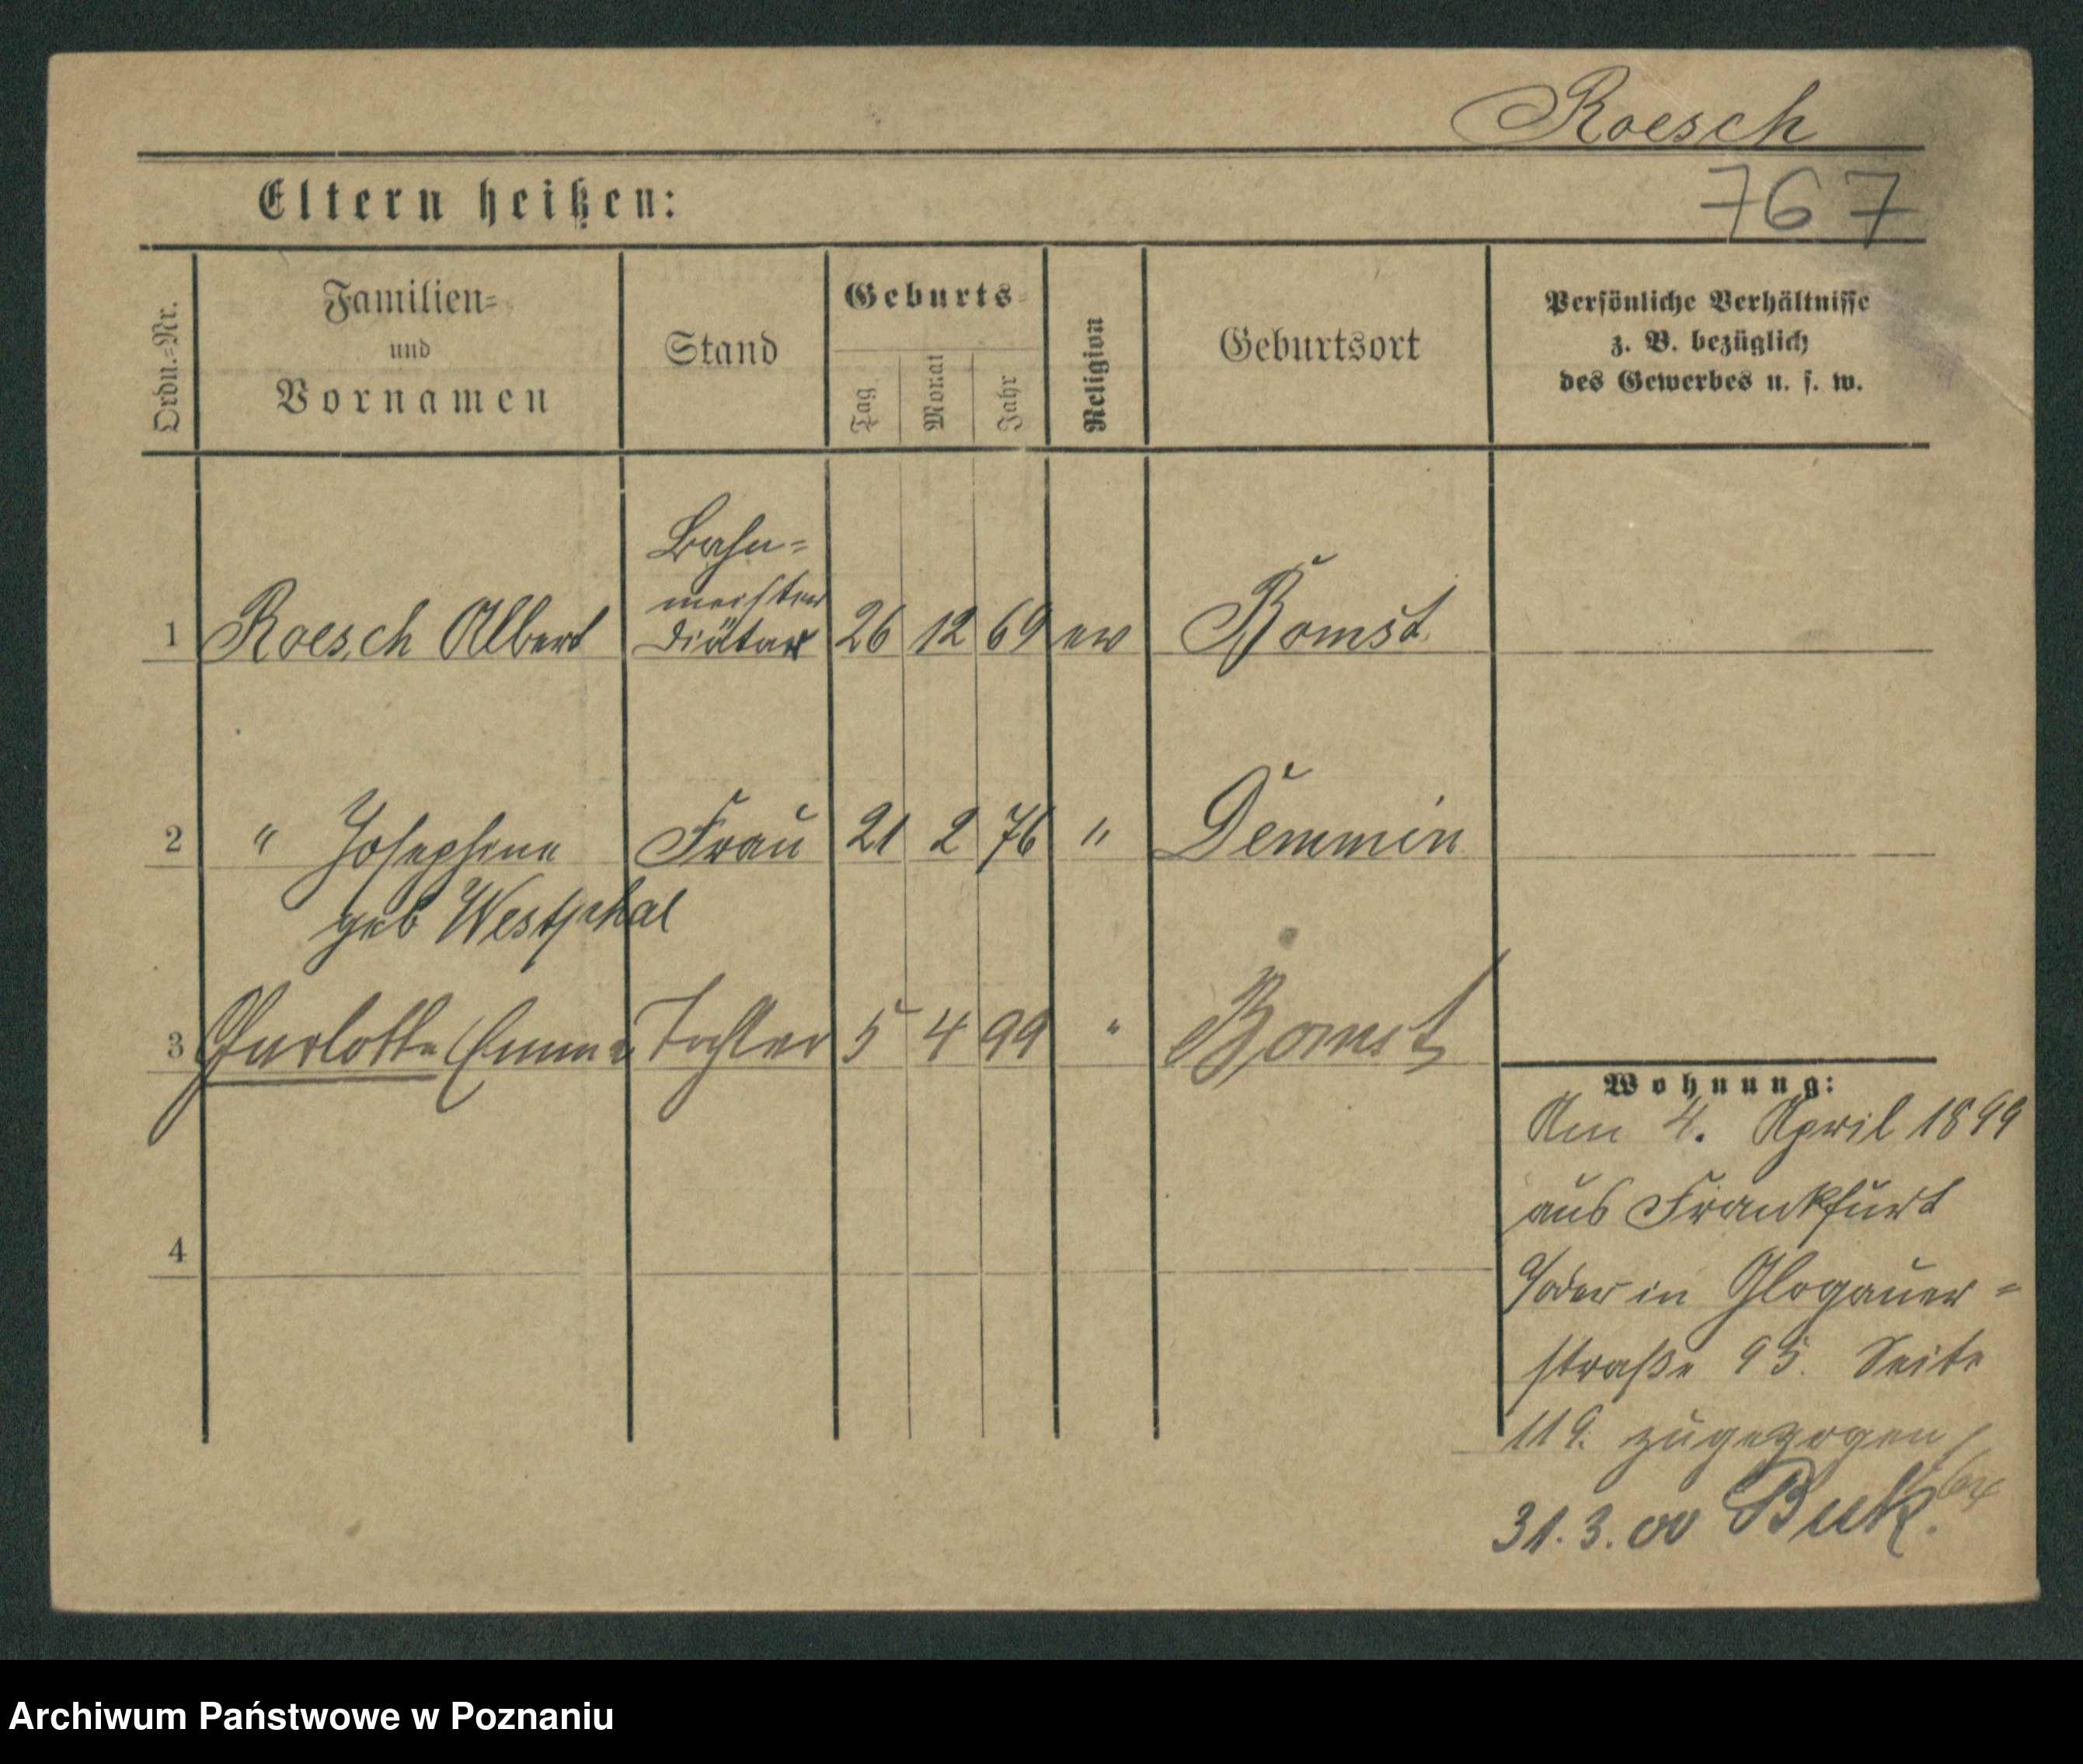 Roesch
767
Eltern heißen:
Ordn.=Nr.
Familien=
und
Vornamen
Stand
Geburts=
Tag
Monat
Jahr
Religion
Geburtsort
Persönliche Verhältnisse
z. B. bezüglich
des Gewerbes u. s. w.
Bahn=
meister
1 Roesch Albert Diätar 26 12 69 ev Bomst
2 " Josephine Frau 21 2 76 " Demmin
geb Westphal
3 Charlotte Emma Tochter 5 4 99 " Bomst
4
Wohnung:
Am 4. April 1899
aus Frankfurt
a/oder in Glogauer=
straße 95. Seite
119. zugezogen
31.3.00 Buk.
Archiwum Państwowe w Poznaniu